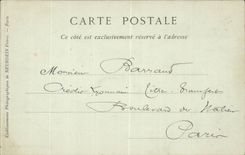 CARTE POSTALE
Ce côté est exclusivement réservé à l'adresse
Monsieur Barraud
Crédit Lyonnais
Boulevard des Italiens
Paris
Etablissements Photographiques de NEURDEIN Frères. — Paris